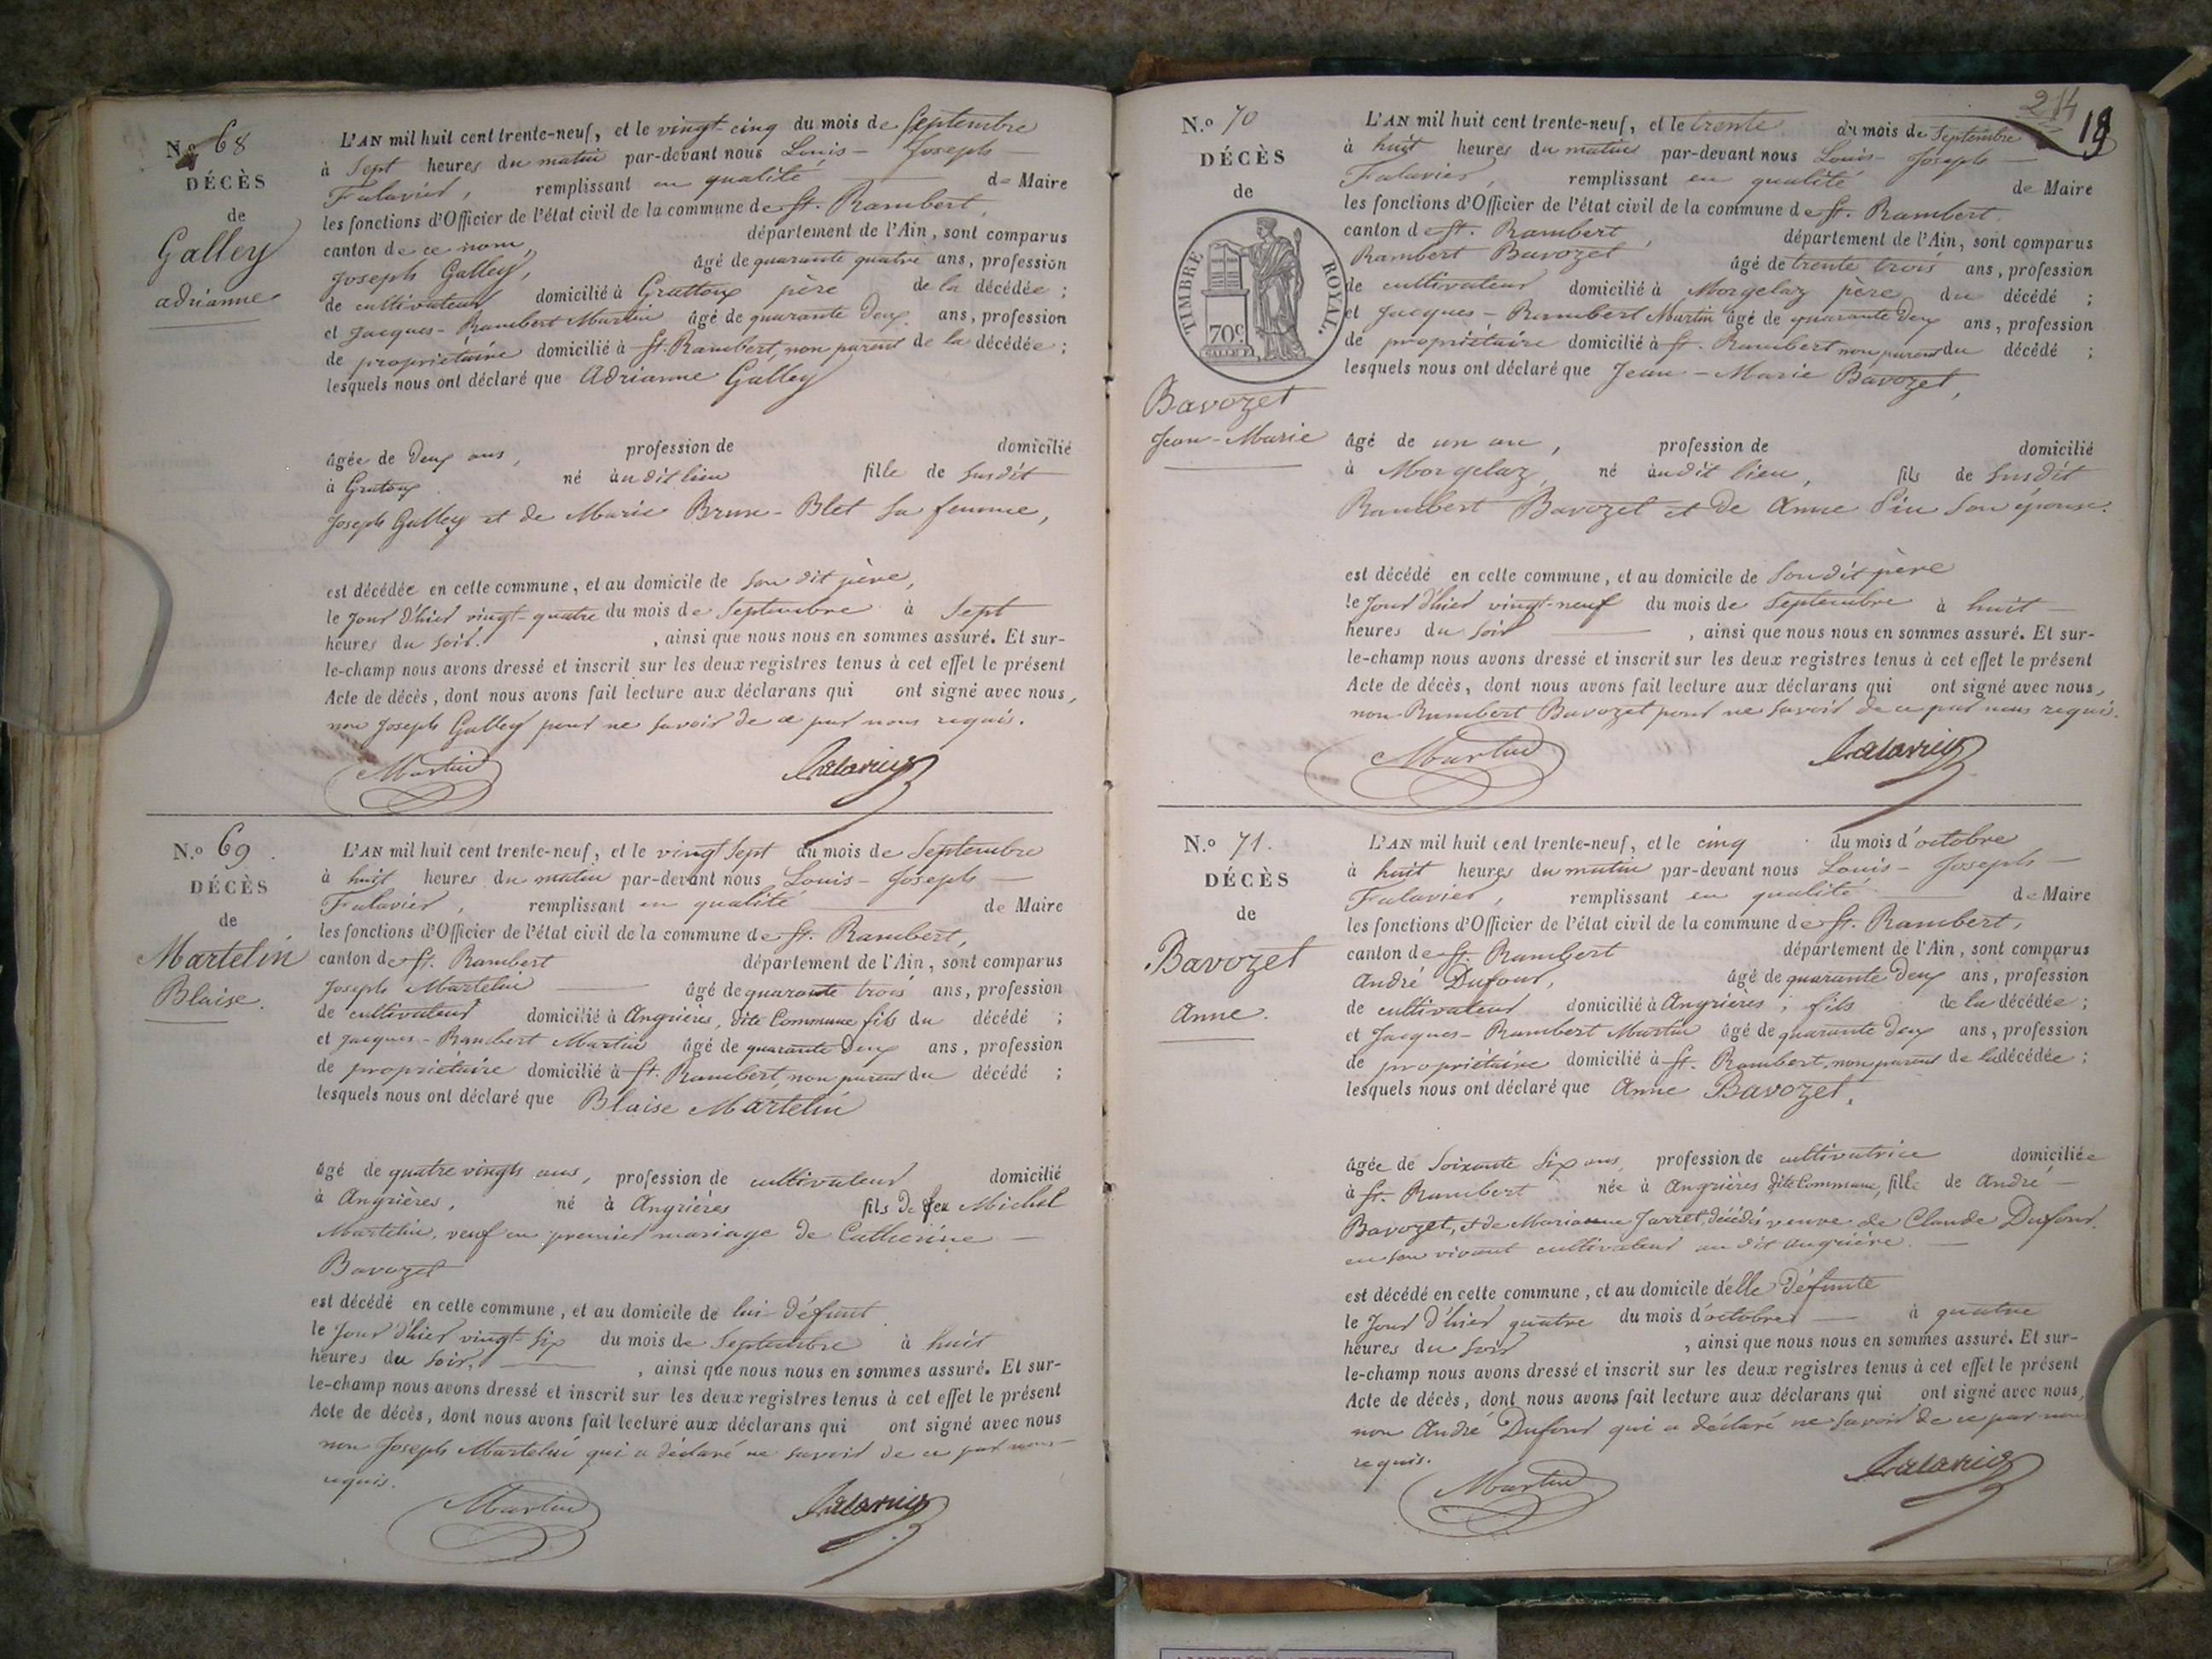 N.o 68
DÉCÈS
de
Galley
adrianne
L'AN mil huit cent trente-neuf, et le vingt-cinq du mois de Septembre
à Sept heures du matin par-devant nous Louis - Joseph
Falavier, remplissant en qualité de Maire
les fonctions d'Officier de l'état civil de la commune de St. Rambert,
canton de ce nom, département de l'Ain, sont comparus
Joseph Galley, âgé de quarante quatre ans, profession
de cultivateur domicilié à Grattoux père de la décédée ;
et Jacques - Rambert Martin âgé de quarante deux ans, profession
de propriétaire domicilié à St. Rambert, non parent de la décédée ;
lesquels nous ont déclaré que Adrianne Galley
âgée de deux ans, profession de domicilié
à Gratoux né àu dit lieu fille de Susdit
Joseph Galley et de Marie Brun - Blet sa femme,
est décédée en cette commune, et au domicile de son dit père,
le jour d'hier vingt-quatre du mois de Septembre à Sept
heures du soir. , ainsi que nous nous en sommes assuré. Et sur-
le-champ nous avons dressé et inscrit sur les deux registres tenus à cet effet le présent
Acte de décès, dont nous avons fait lecture aux déclarans qui ont signé avec nous,
non Joseph Galley pour ne savoir de ce par nous requis.
Martin Falavier
N.o 69
DÉCÈS
de
Martelin
Blaise.
L'AN mil huit cent trente-neuf, et le vingt Sept du mois de Septembre
à huit heures du matin par-devant nous Louis - Joseph
Falavier, remplissant en qualité de Maire
les fonctions d'Officier de l'état civil de la commune de St. Rambert,
canton de St. Rambert département de l'Ain, sont comparus
Joseph Martelin âgé de quarante trois ans, profession
de cultivateur domicilié à Angrières, dite Commune fils du décédé ;
et Jacques - Rambert Martin âgé de quarante deux ans, profession
de propriétaire domicilié à St. Rambert, non parent du décédé ;
lesquels nous ont déclaré que Blaise Martelin
âgé de quatre vingts ans, profession de cultivateur domicilié
à Angrières, né à Angrières fils de feu Michel
Martelin, veuf en premier mariage de Catherine
Bavozet
est décédé en cette commune, et au domicile de lui défunt
le jour d'hier vingt-six du mois de Septembre à huit
heures du soir, , ainsi que nous nous en sommes assuré. Et sur-
le-champ nous avons dressé et inscrit sur les deux registres tenus à cet effet le présent
Acte de décès, dont nous avons fait lecture aux déclarans qui ont signé avec nous
non Joseph Martelin qui a déclaré ne savoir de ce par nous
requis.
Martin Falavier
214
18
N.o 70
DÉCÈS
de
TIMBRE ROYAL.
70c
Bavozet
Jean - Marie
L'AN mil huit cent trente-neuf, et le trente du mois de Septembre
à huit heures du matin par-devant nous Louis - Joseph
Falavier, remplissant en qualité de Maire
les fonctions d'Officier de l'état civil de la commune de St. Rambert.
canton de St. Rambert, département de l'Ain, sont comparus
Rambert Bavozet âgé de trente trois ans, profession
de cultivateur domicilié à Morgelaz père du décédé ;
et Jacques - Rambert Martin âgé de quarante deux ans, profession
de propriétaire domicilié à St. Rambert non parent du décédé ;
lesquels nous ont déclaré que Jean - Marie Bavozet,
âgé de un an, profession de domicilié
à Morgelaz, né àu dit lieu, fils de Susdit
Rambert Bavozet et de Anne Pin son épouse.
est décédé en cette commune, et au domicile de Son dit père
le jour d'hier vingt-neuf du mois de Septembre à huit
heures du soir , ainsi que nous nous en sommes assuré. Et sur-
le-champ nous avons dressé et inscrit sur les deux registres tenus à cet effet le présent
Acte de décès, dont nous avons fait lecture aux déclarans qui ont signé avec nous,
non Rambert Bavozet pour ne savoir de ce par nous requis.
Martin Falavier
N.o 71.
DÉCÈS
de
Bavozet
Anne.
L'AN mil huit cent trente-neuf, et le cinq du mois d'octobre
à huit heures du matin par-devant nous Louis - Joseph
Falavier, remplissant en qualité de Maire
les fonctions d'Officier de l'état civil de la commune de St. Rambert,
canton de St. Rambert département de l'Ain, sont comparus
André Dufour, âgé de quarante deux ans, profession
de cultivateur domicilié à Angrières, fils de la décédée ;
et Jacques - Rambert Martin âgé de quarante deux ans, profession
de propriétaire domicilié à St. Rambert, non parent de la décédée ;
lesquels nous ont déclaré que Anne Bavozet.
âgée de soixante six ans, profession de cultivatrice domiciliée
à St. Rambert née à Angrières dite Commune, fille de André
Bavozet, et de Marianne Jarret, décédés veuve de Claude Dufour.
en son vivant cultivateur au dit angrière.
est décédé en cette commune, et au domicile d'elle défunte
le jour d'hier quatre du mois d'octobre à quatre
heures du soir , ainsi que nous nous en sommes assuré. Et sur-
le-champ nous avons dressé et inscrit sur les deux registres tenus à cet effet le présent
Acte de décès, dont nous avons fait lecture aux déclarans qui ont signé avec nous,
non André Dufour qui a déclaré ne savoir de ce par nous
requis.
Martin Falavier